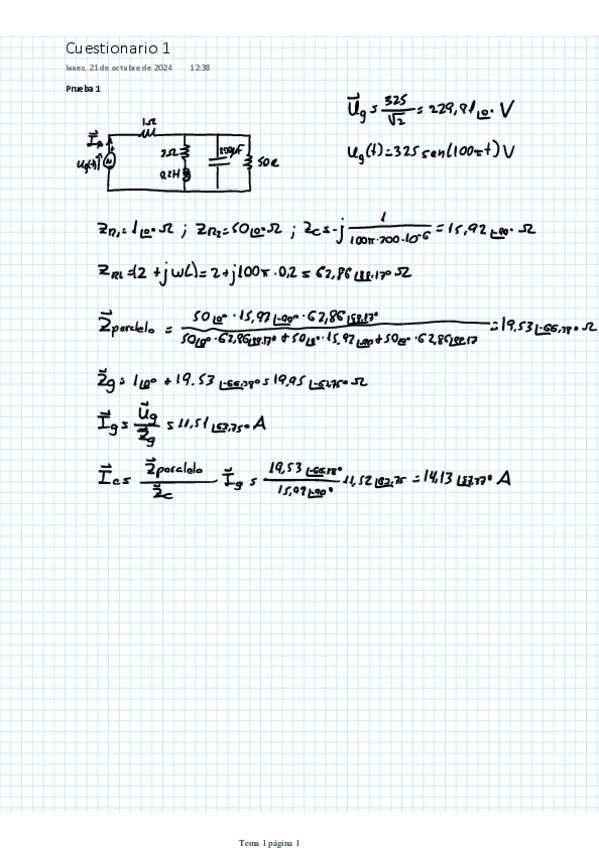 Cuestionario 1
lunes, 21 de octubre de 2024 12:38
Prueba 1
U⃗g = 325/√2 = 229,81∠0° V
ug(t) = 325 sen(100πt) V
1Ω
I⃗g
ug(t)
2Ω
0.2H
200µF
50Ω
ZR1 = 1∠0° Ω ; ZR2 = 50∠0° Ω ; Zc = -j 1/(100π·200·10-6) = 15,92∠-90° Ω
ZRL = (2 + jωL) = 2+j100π·0,2 = 62,86∠88.17° Ω
Z⃗paralelo = (50∠0° · 15,92∠-90° · 62,86∠88.17°)/(50∠0° · 62,86∠88.17° + 50∠0° · 15,92∠-90 + 50∠0° · 62,86∠88.17) = 19,53∠-66,78° Ω
Z⃗g = 1∠0° + 19.53∠-66,78° = 19,95∠-62.75° Ω
I⃗g = U⃗g/Z⃗g = 11,51∠62,75° A
I⃗c = Z⃗paralelo/Z⃗c I⃗g = (19,53∠-66.78°)/(15,92∠-90°) 11,52∠62,75 = 14,13∠87.77° A
Tema 1 página 1